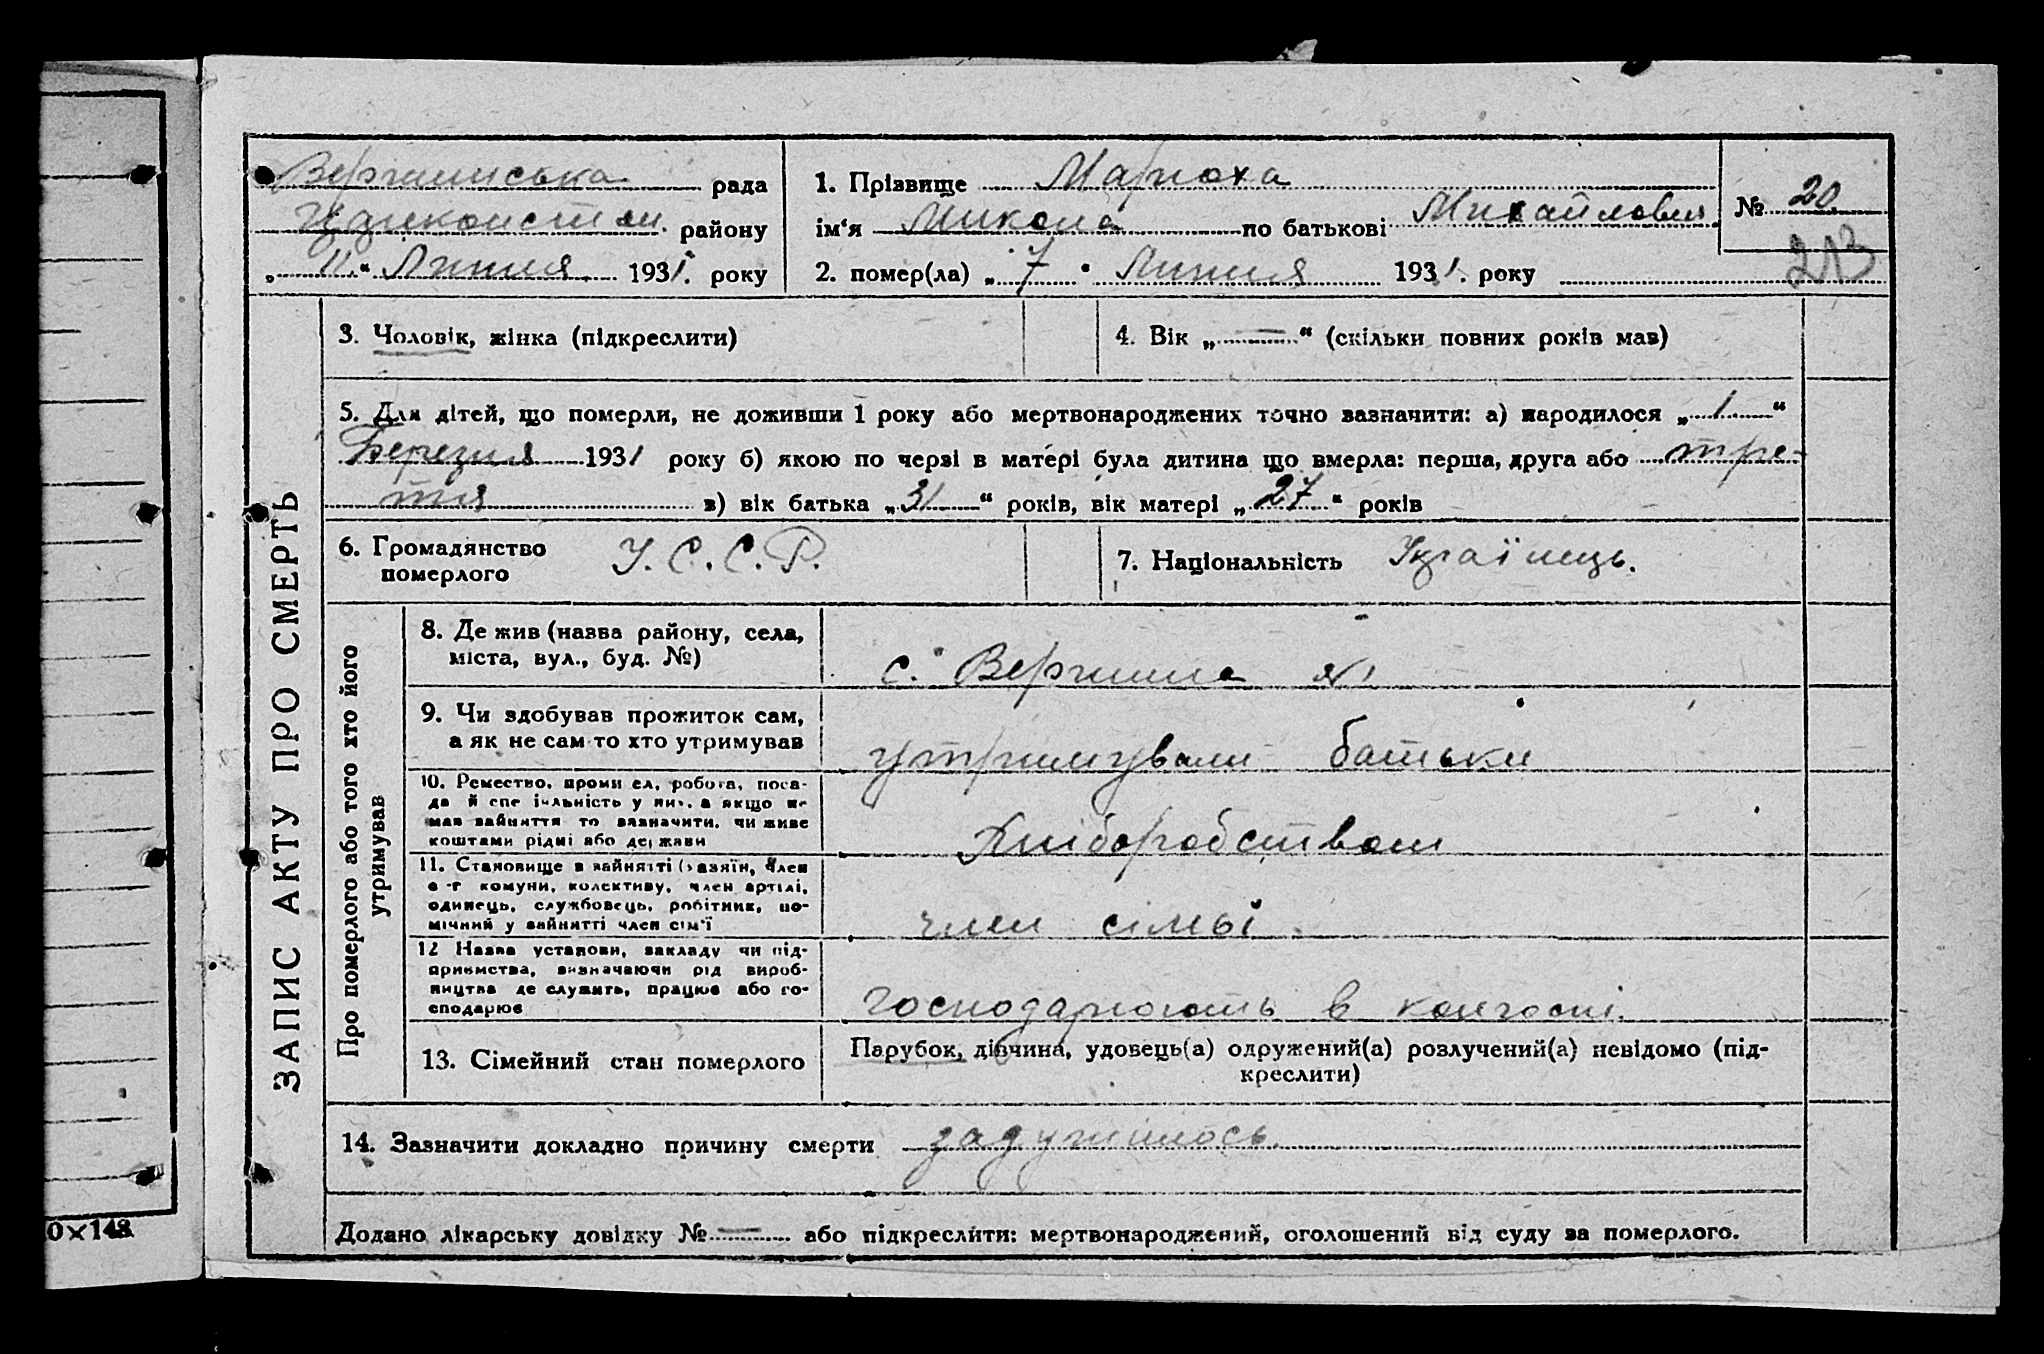 рада
району
„ 11 “ Липня 1931. року
1. Прізвище Марюха
ім‘я Микола по батькові Михайлович
2. помер(ла) „ 7 “ Липня 1931. року
№ 20
213
3. Чоловік, жінка (підкреслити)
4. Вік „ — “ (скільки повних років мав)
5. Для дітей, що померли, не доживши 1 року або мертвонароджених точно зазначити: а) народилося „ 1 “
Березня 1931 року б) якою по черзі в матері була дитина що вмерла: перша, друга або тре-
тя в) вік батька „ 31 “ років, вік матері „ 27 “ років
6. Громадянство У.С.С.Р.
померлого
7. Національність Українець.
ЗАПИС АКТУ ПРО СМЕРТЬ
Про померлого або того хто його
утримував
8. Де жив (назва району, села,
міста, вул., буд. №)
с. Вергшина №1
9. Чи здобував прожиток сам,
а як не сам то хто утримував
утримували батьки
10. Ремество, промисел, робота, поса-
да й спеціяльність у них, а якщо не
мав зайняття то зазначити, чи живе
коштами рідні або держави
Хліборобством
11. Становище в зайнятті (хазяїн, член
с-г комуни, колективу, член артілі,
одинець, службовець, робітник, по-
мічний у зайнятті член сім‘ї
член сімьї
12 Назва установи, закладу чи під-
приємства, визначаючи рід вироб-
ництва де служить, працює або го-
сподарює
господарюють в колгоспі.
13. Сімейний стан померлого
Парубок, дівчина, удовець(а) одружений(а) розлучений(а) невідомо (під-
креслити)
14. Зазначити докладно причину смерти задушилось.
Додано лікарську довідку № — або підкреслити: мертвонароджений, оголошений від суду за померлого.
0×148